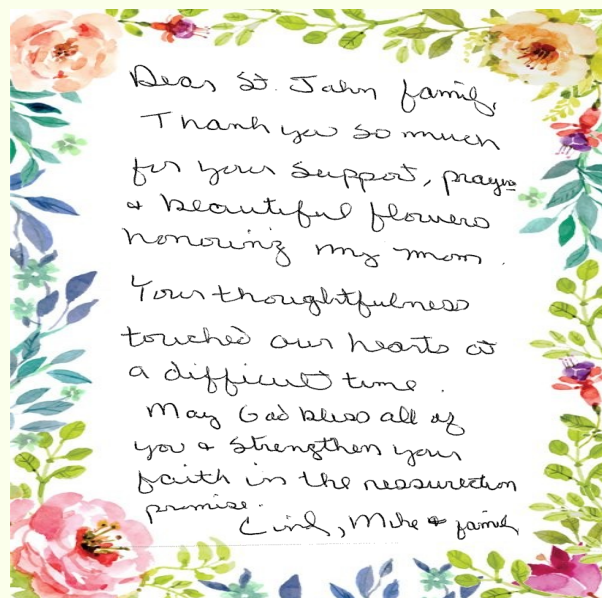 Dear St. John family,
Thank you so much
for your support, prayers
& beautiful flowers
honoring my mom.
Your thoughtfulness
touched our hearts at
a difficult time.
May God bless all of
you & strengthen your
faith in the ressurection
promise.
Mike & family